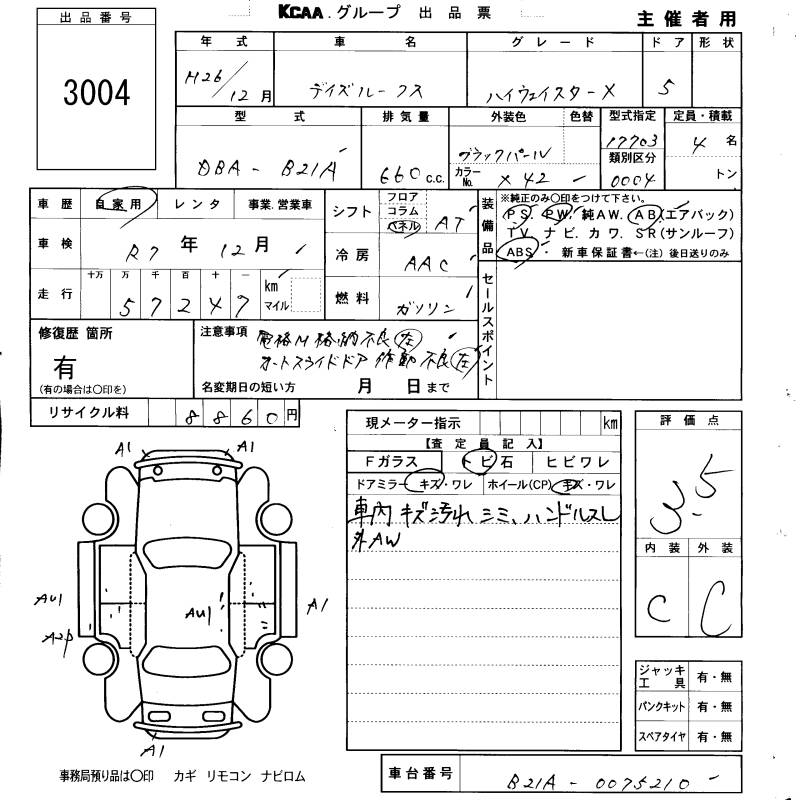 出品番号
3004
KCAA.グループ 出品票
主催者用
年式 車名 グレード ドア 形状
H26/12月 デイズルークス ハイウェイスターX 5
型式 排気量 外装色 色替 型式指定 定員・積載
DBA-B21A 660c.c. ブラックパール 17703 4名
カラーNo. X42 類別区分 0004 トン
車歴 自家用 レンタ 事業.営業車
車検 R7年12月
走行 十万 万 千 百 十 一 km マイル
57247
シフト フロア コラム パネル AT
冷房 AAC
燃料 ガソリン
装備品
※純正のみ○印をつけて下さい。
PS. PW. 純AW. AB(エアバック)
TV. ナビ. カワ. SR(サンルーフ)
ABS・ 新車保証書←(注) 後日送りのみ
セールスポイント
修復歴 箇所
有
(有の場合は○印を)
注意事項 電格M格納不良(左)
オートスライドドア 作動不良(左)
名変期日の短い方 月 日まで
リサイクル料 8860円
現メーター指示 km
【査定員記入】
Fガラス トビ石 ヒビワレ
ドアミラー キズ・ワレ ホイール(CP) キズ・ワレ
車内 キズ汚れ シミ、ハンドルスレ
外AW
評価点
3.5
内装 外装
C C
A1 A1
AU1 AU1 A1
A2P
A1
ジャッキ工具 有・無
パンクキット 有・無
スペアタイヤ 有・無
事務局預り品は○印 カギ リモコン ナビロム
車台番号 B21A-0075210